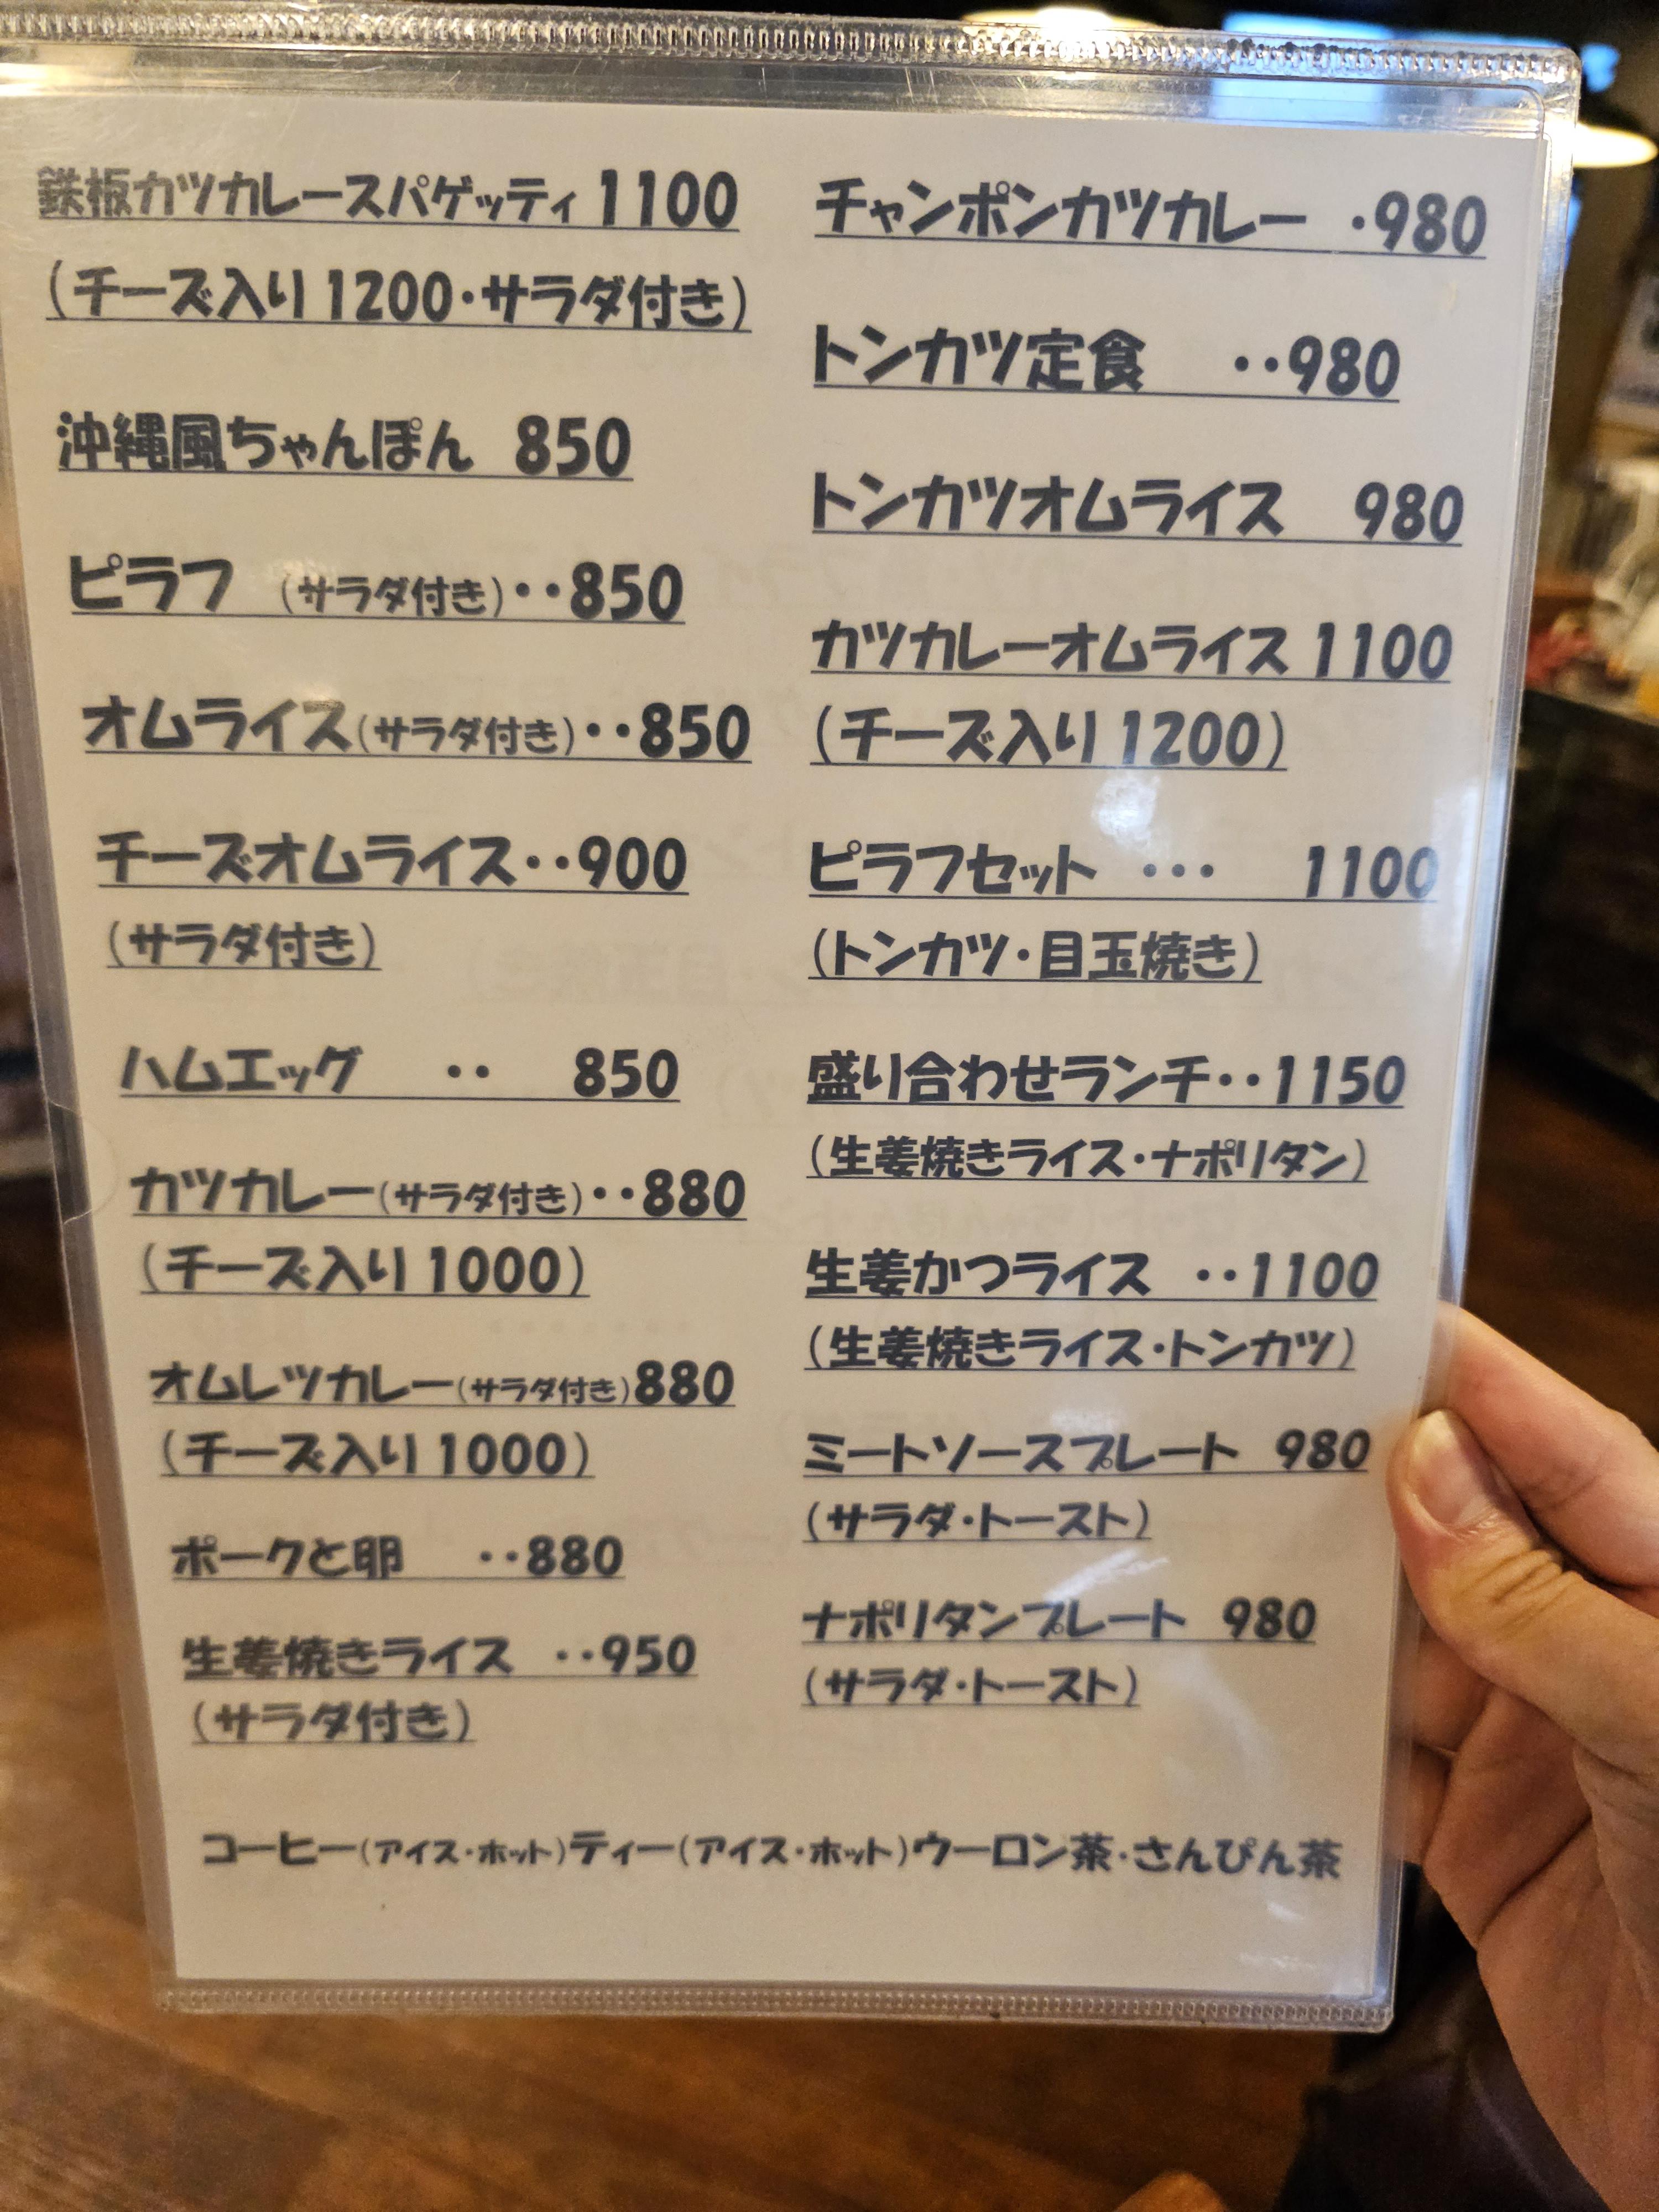 鉄板カツカレースパゲッティ 1100
(チーズ入り 1200・サラダ付き)
沖縄風ちゃんぽん 850
ピラフ (サラダ付き)・・850
オムライス(サラダ付き)・・850
チーズオムライス・・900
(サラダ付き)
ハムエッグ ・・ 850
カツカレー(サラダ付き)・・880
(チーズ入り 1000)
オムレツカレー(サラダ付き)880
(チーズ入り 1000)
ポークと卵 ・・880
生姜焼きライス ・・950
(サラダ付き)
チャンポンカツカレー ・980
トンカツ定食 ・・980
トンカツオムライス 980
カツカレーオムライス 1100
(チーズ入り 1200)
ピラフセット ・・・ 1100
(トンカツ・目玉焼き)
盛り合わせランチ・・1150
(生姜焼きライス・ナポリタン)
生姜かつライス ・・1100
(生姜焼きライス・トンカツ)
ミートソースプレート 980
(サラダ・トースト)
ナポリタンプレート 980
(サラダ・トースト)
コーヒー(アイス・ホット)ティー(アイス・ホット)ウーロン茶・さんぴん茶